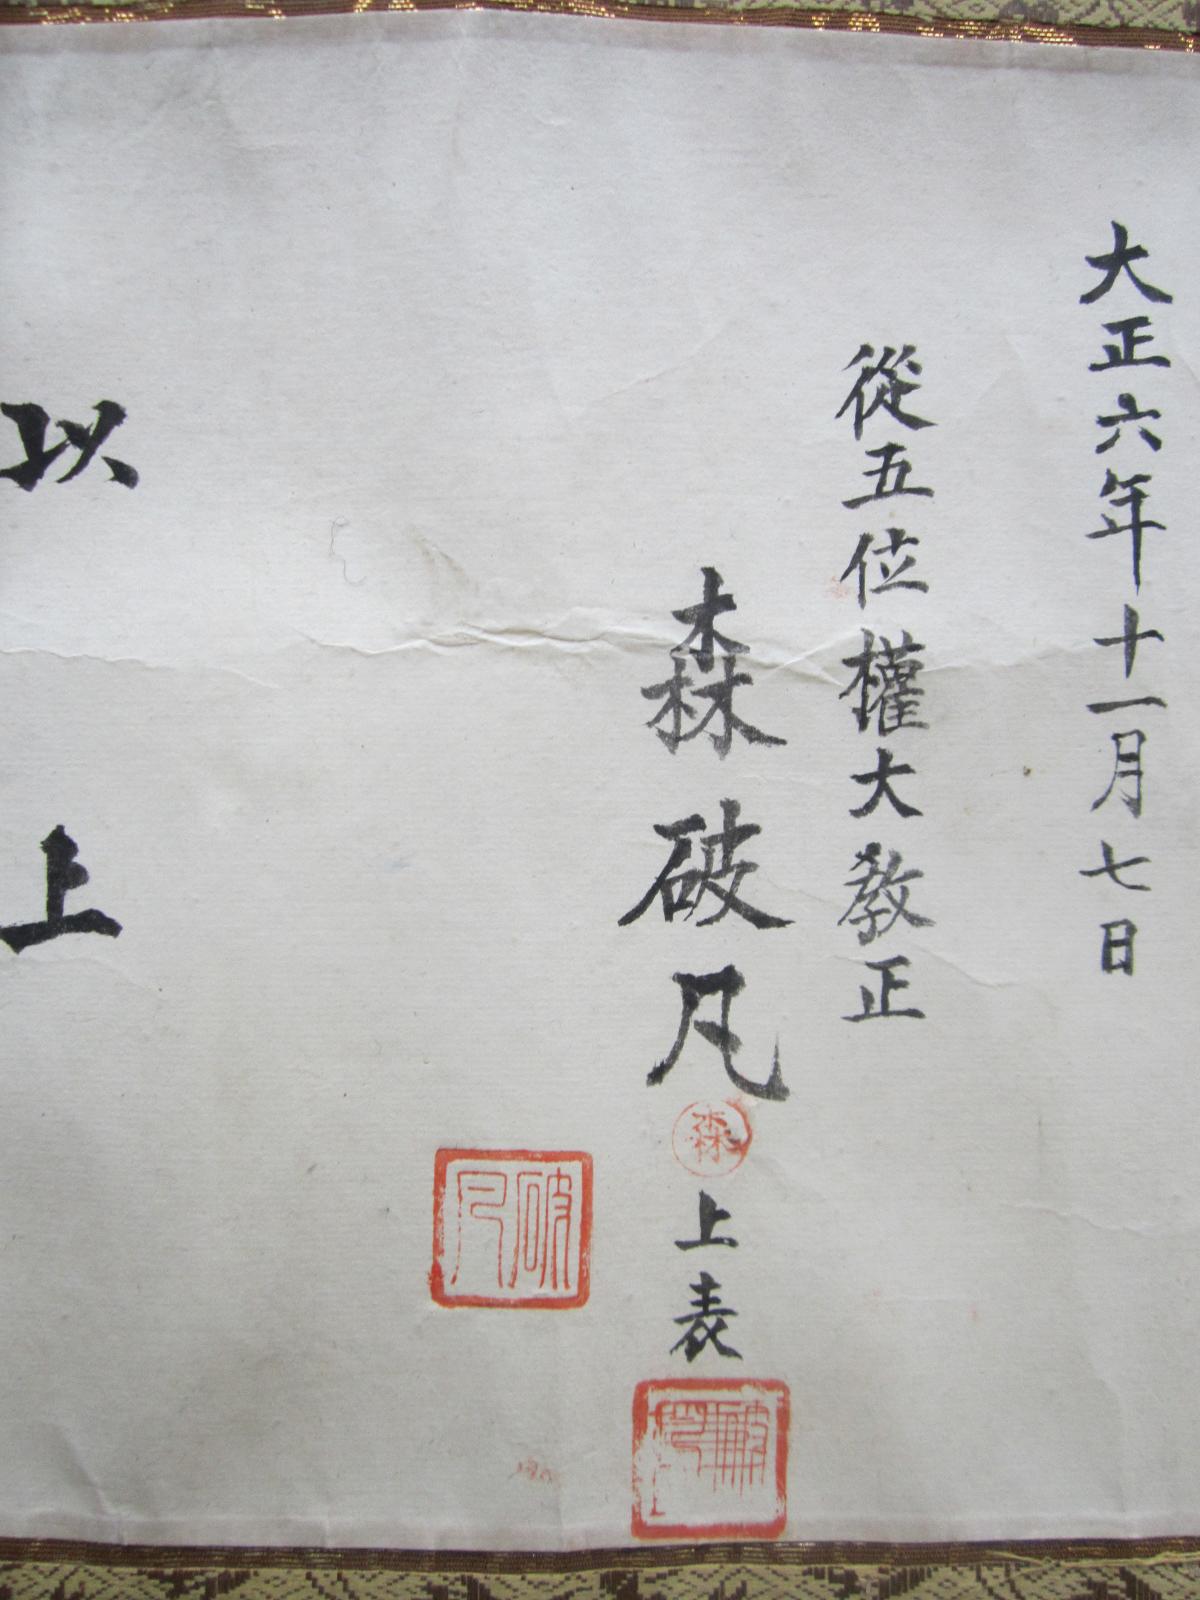 大正六年十一月七日
從五位權大教正
森破凡
森
上表
破凡
以上